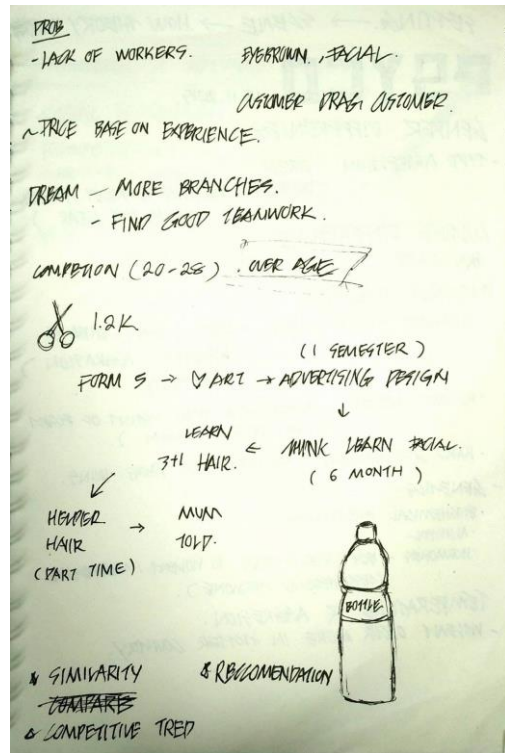 PROB
- LACK OF WORKERS.
EYEBROWN, FACIAL.
CUSTOMER DRAG CUSTOMER.
~ PRICE BASE ON EXPERIENCE.
DREAM - MORE BRANCHES.
- FIND GOOD TEAMWORK.
COMPETION (20-28). OVER AGE
1.2K
(1 SEMESTER)
FORM 5 → ♡ ART → ADVERTISING DESIGN
↓
LEARN 3+1 HAIR. ← THINK LEARN FACIAL.
(6 MONTH)
HELPER HAIR (PART TIME) → MUM TOLD.
BOTTLE
* SIMILARITY
* RECCOMENDATION
COMPARE
* COMPETITIVE TRED